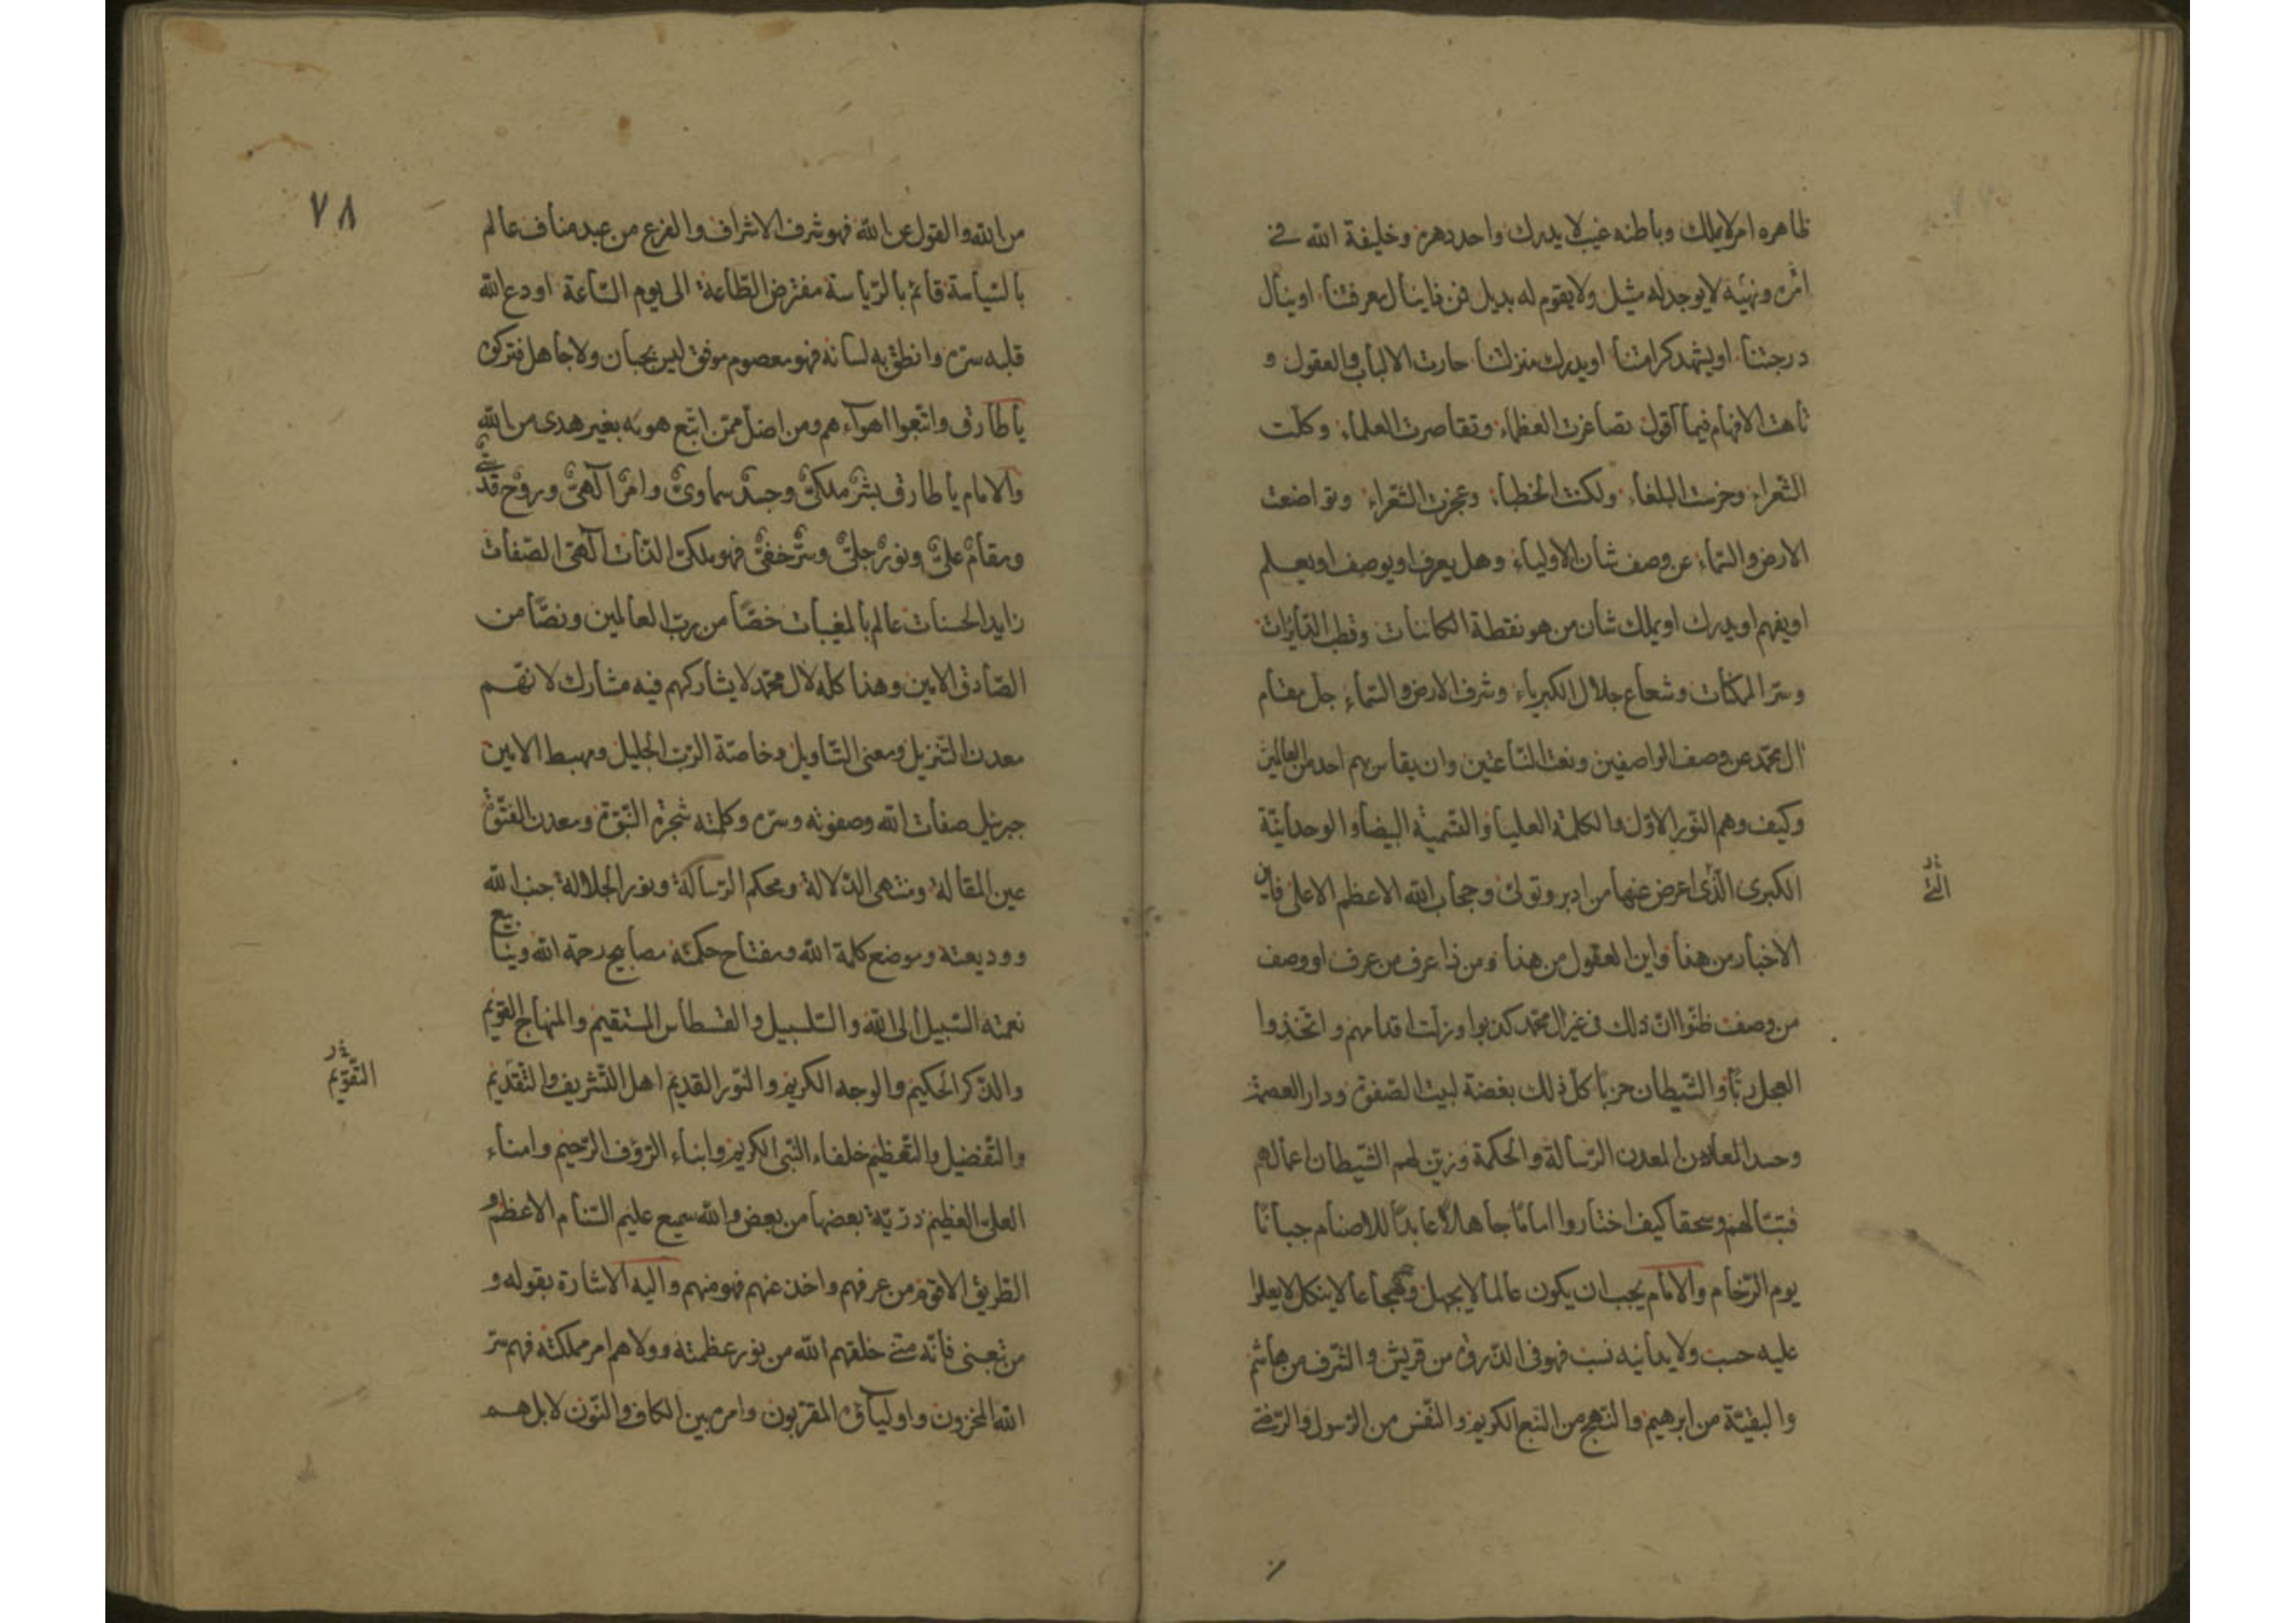 ظاهره امر لا يملك وباطنه غيب لا يدرك واحد دهره وخليفة الله في
امره ونهيه لا يوجد له مثيل ولا يقوم له بديل فمن ذا ينال معرفتنا او ينال
درجتنا او يشهد كرامتنا او يدرك منزلتنا حارت الالباب والعقول و
تاهت الافهام فيما اقول تصاغرت العظماء وتقاصرت العلماء وكلّت
الشعراء وخرست البلغاء ولكنت الخطباء وعجزت الشعراء وتواضعت
الارض والسّماء عن وصف شان الاولياء وهل يعرف او يوصف او يعلم
او يفهم او يدرك او يملك شان من هو نقطة الكائنات وقطب الدّائرات
وسرّ الممكنات وشعاع جلال الكبرياء وشرف الارض والسّماء جلّ مقام
ال محمّد عن وصف الواصفين ونعت النّاعتين وان يقاس بهم احد من العالمين
وكيف وهم النّور الاوّل والكلمة العليا والتّسمية البيضاء والوحدانيّة
الكبرى الّذى اعرض عنها من ادبر وتولّى وحجاب الله الاعظم الاعلى فاين
الّتي
الاخبار من هذا واين العقول من هذا ومن ذا عرف من عرف او وصف
من وصف ظنّوا انّ ذلك فى غير ال محمّد كذبوا وزلّت اقدامهم واتّخذوا
العجل ربّا والشّيطان حزبا كلّ ذلك بغضة لبيت الصّفوة ودار العصمة
وحسدا لمعدن الرّسالة والحكمة وزيّن لهم الشّيطان اعمالهم
فتبّا لهم وسحقا كيف اختاروا اماما جاهلا عابدا للاصنام جبانا
يوم الزّحام والامام يجب ان يكون عالما لا يجهل وشجاعا لا ينكل لا يعلوا
عليه حسب ولا يدانيه نسب فهو فى الذّروة من قريش والشّرف من هاشم
والبقيّة من ابرهيم والنّهج من النّبع الكريم والنّفس من الرّسول والرّضى
٧٨
من الله والقول عن الله فهو شرف الاشراف والفرع من عبد مناف عالم
بالسّياسة قائم بالرّياسة مفترض الطّاعة الى يوم السّاعة اودع الله
قلبه سرّه وانطق به لسانه فهو معصوم موفّق ليس بجبان ولا جاهل فتركوه
يا طارق واتّبعوا اهوآءهم ومن اضلّ ممّن اتّبع هويه بغير هدى من الله
والامام يا طارق بشر ملكىّ وجسد سماوىّ وامر آلهىّ وروح قدسىّ
ومقام علىّ ونور جلىّ وسرّ خفىّ فهو ملكىّ الذّات آلهىّ الصّفات
زايد الحسنات عالم بالمغيبات خصّا من ربّ العالمين ونصّا من
الصّادق الامين وهذا كلّه لال محمّد لا يشاركهم فيه مشارك لانّهم
معدن التّنزيل ومعنى التّاويل وخاصّة الرّب الجليل ومهبط الامين
جبرئيل صفات الله وصفوته وسرّه وكلمته شجرة النّبوّة ومعدن الفتوّة
عين المقالة ومنتهى الدّلالة ومحكم الرّسالة ونور الجلالة جنب الله
ووديعته وموضع كلمة الله ومفتاح حكمته مصابيح رحمة الله وينابيع
نعمته السّبيل الى الله والسّلسبيل والقسطاس المستقيم والمنهاج القويم
والذّكر الحكيم والوجه الكريم والنّور القديم اهل التّشريف والتّقديم
التّقويم
والتّفضيل والتّعظيم خلفاء النّبى الكريم وابناء الرّؤف الرّحيم وامناء
العلىّ العظيم ذرّيّة بعضها من بعض والله سميع عليم السّنام الاعظم و
الطّريق الاقوم من عرفهم واخذ عنهم فهو منهم واليه الاشارة بقوله و
من تبعنى فانّه منّى خلقهم الله من نور عظمته وولاهم امر مملكته فهم سرّ
الله المخزون واوليآؤه المقرّبون وامره بين الكاف والنّون لا بل هم